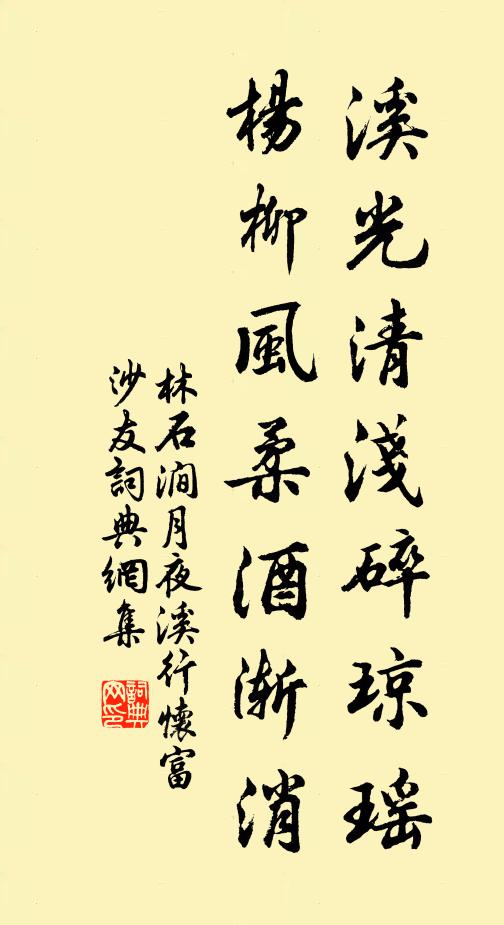 溪光清淺碎琼瑶
楊柳風柔酒漸消
林石澗月夜溪行懷富
沙友詞典網集
詞典网印